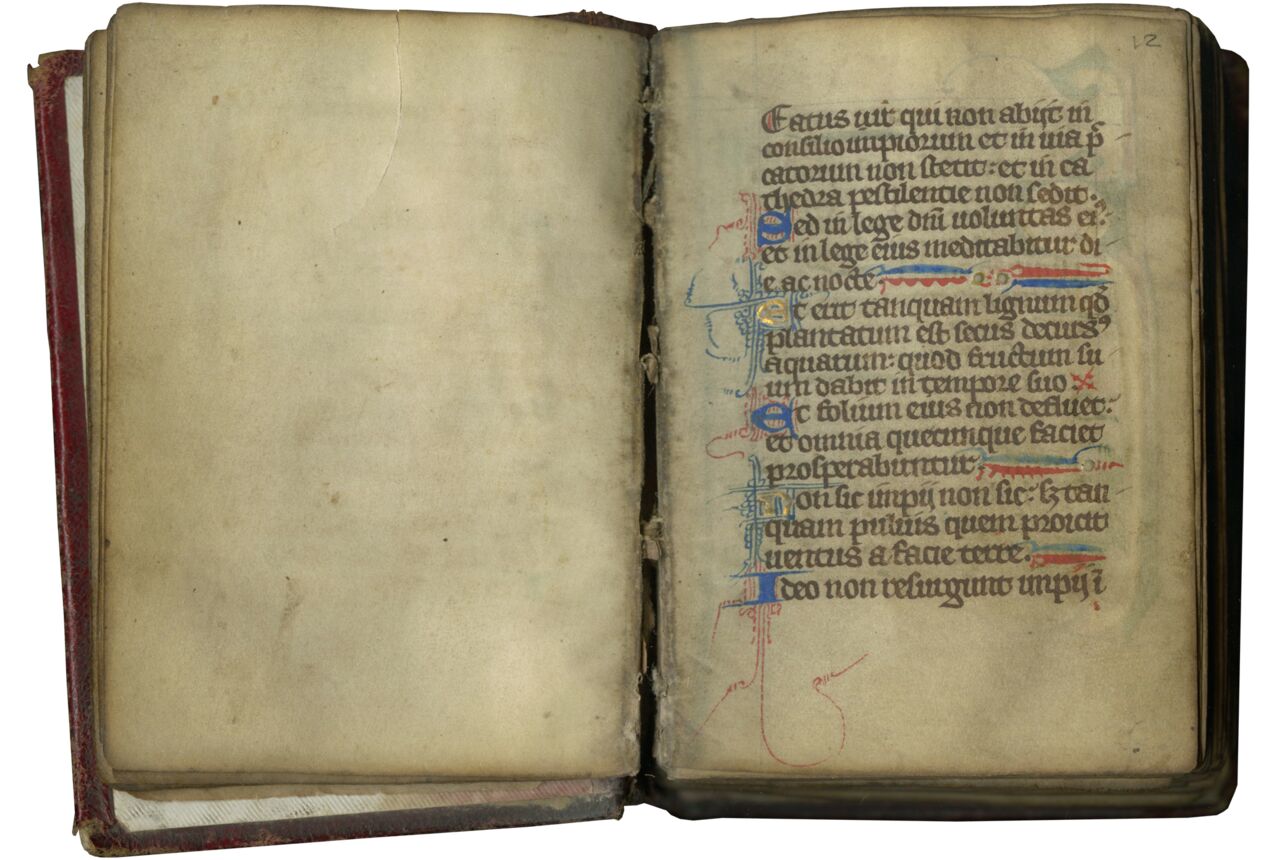 12
Eatus uir qui non abijt in
consilio impiorum et in uia p̄
catorum non stetit: et in ca
thedra pestilencie non sedit.
Sed in lege dn̄i uoluntas ei᷒:
et in lege ei᷒us meditabitur di
e ac nocte.
Et erit tanquam lignum qd̄
plantatum est secus decurs᷒
aquarum: quod fructum su
um dabit in tempore suo
Et folium eius non defluet:
et omnia quecunque faciet
prosperabuntur.
Non sic impij non sic: sꝫ tan
quam puluis quem proicit
uentus a facie terre.
Ideo non resurgunt impij ī